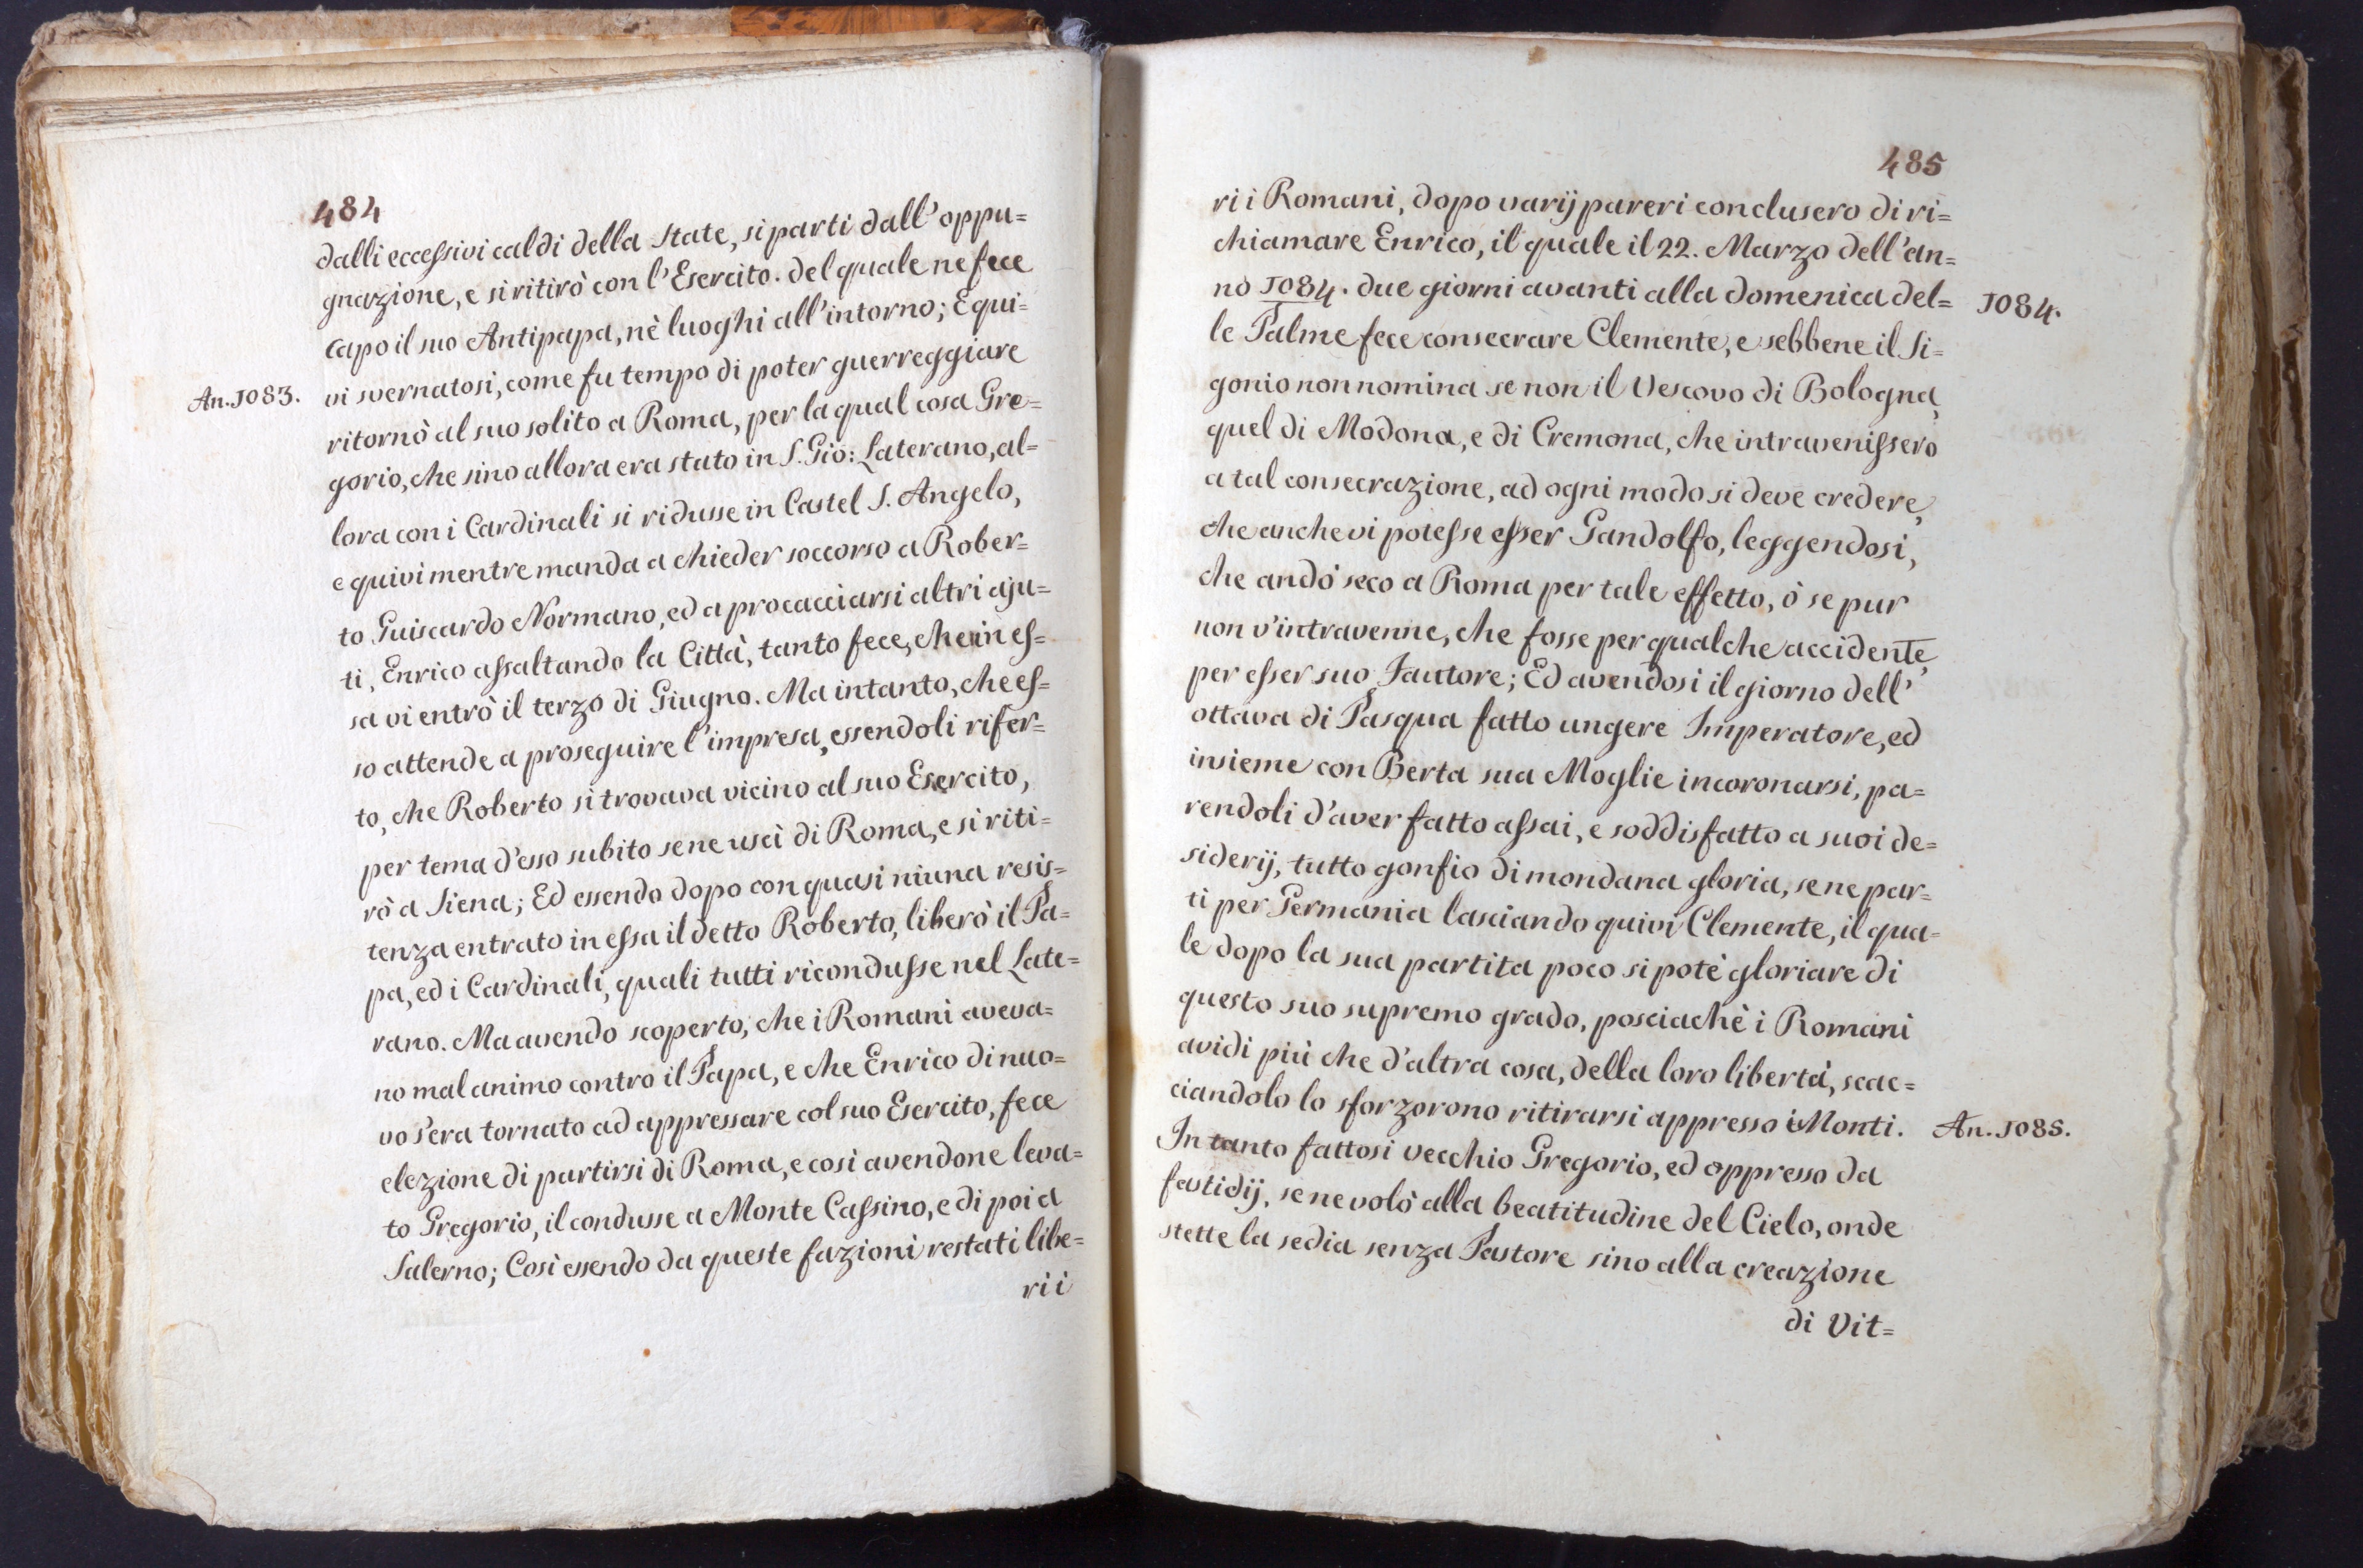 484
dalli eccessivi caldi della State, si parti dall' oppu=
gnazione, e si ritirò con l' Esercito. del quale ne fece
capo il suo Antipapa, nè luoghi all' intorno; E qui=
An. 1083.
vi svernatosi, come fu tempo di poter guerreggiare
ritornò al suo solito a Roma, per la qual cosa Gre=
gorio, che sino allora era stato in S. Gio: Laterano, al=
lora con i Cardinali si ridusse in Castel S. Angelo,
e quivi mentre manda a chieder soccorso a Rober=
to Guiscardo Normano, ed a procacciarsi altri aju=
ti, Enrico assaltando la Città, tanto fece, che in es=
sa vi entrò il terzo di Giugno. Ma intanto, che es=
so attende a proseguire l' impresa, essendoli rifer=
to, che Roberto si trovava vicino al suo Esercito,
per tema d'esso subito se ne uscì di Roma, e si riti=
rò a Siena; Ed essendo dopo con quasi niuna resis=
tenza entrato in essa il detto Roberto, liberò il Pa=
pa, ed i Cardinali, quali tutti ricondusse nel Late=
rano. Ma avendo scoperto, che i Romani aveva=
no mal animo contro il Papa, e che Enrico di nuo=
vo s'era tornato ad appressare col suo Esercito, fece
elezione di partirsi di Roma, e così avendone leva=
to Gregorio, il condusse a Monte Cassino, e di poi a
Salerno; Così essendo da queste fazioni restati libe=
ri i
485
ri i Romani, dopo varij pareri conclusero di ri=
chiamare Enrico, il quale il 22. Marzo dell' an=
no 1084. due giorni avanti alla domenica del=
1084.
le Palme fece consecrare Clemente, e sebbene il Si=
gonio non nomina se non il Vescovo di Bologna,
quel di Modona, e di Cremona, che intravenissero
a tal consecrazione, ad ogni modo si deve credere,
che anche vi potesse esser Gandolfo, leggendosi,
che andò seco a Roma per tale effetto, ò se pur
non v'intravenne, che fosse per qualche accidente,
per esser suo Fautore; Ed avendosi il giorno dell'
ottava di Pasqua fatto ungere Imperatore, ed
insieme con Berta sua Moglie incoronarsi, pa=
rendoli d'aver fatto assai, e soddisfatto a suoi de=
siderij, tutto gonfio di mondana gloria, se ne par=
ti per Germania lasciando quivi Clemente, il qua=
le dopo la sua partita poco si potè gloriare di
questo suo supremo grado, posciachè i Romani
avidi più che d'altra cosa, della loro libertà, scac=
ciandolo lo sforzorono ritirarsi appresso i Monti.
An. 1085.
In tanto fattosi vecchio Gregorio, ed oppresso da
fastidij, se ne volò alla beatitudine del Cielo, onde
stette la sedia senza Pastore sino alla creazione
di Vit=